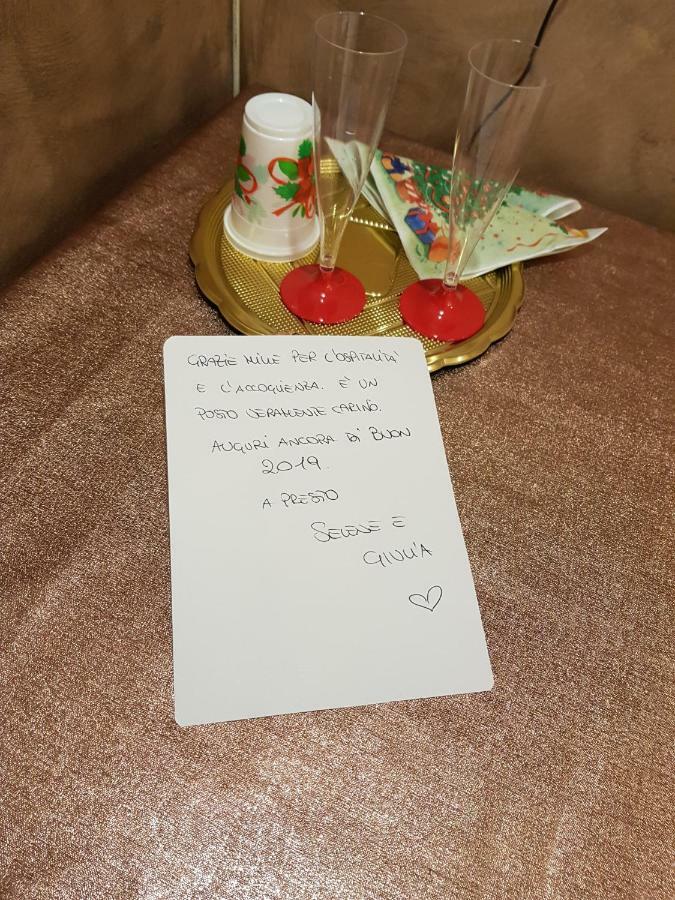 GRAZIE MILLE PER L'OSPITALITÀ
E L'ACCOGLIENZA. È UN
POSTO VERAMENTE CARINO.
AUGURI ANCORA DI BUON
2019.
A PRESTO
SELENE E
GIULIA